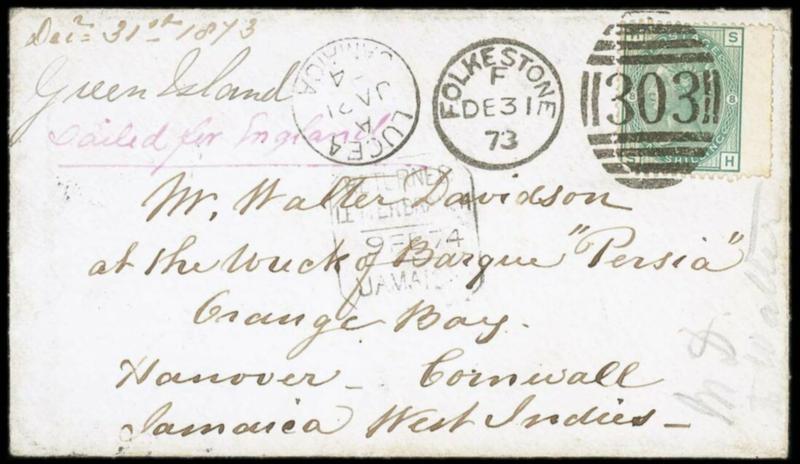 Decr 31st 1873
Green Island
Sailed for England
LUCEA
A
JA 21
74
JAMAICA
FOLKESTONE
F
DE 31
73
303
H POSTAGE S
8 8
S SHILLING H
RETURNED
LETTER BRANCH
9 FE 74
JAMAICA
Mr. Walter Davidson
at the Wreck of Barque "Persia"
Orange Bay.
Hanover - Cornwall
Jamaica West Indies -
M D
Walter